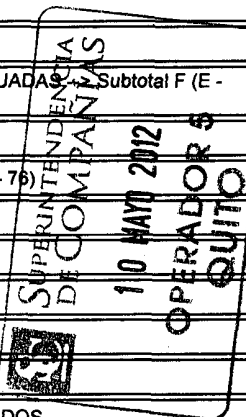 UADAS + Subtotal F (E -
- 76)
SUPERINTENDENCIA
DE COMPAÑIAS
10 MAYO 2012
OPERADOR 5
QUITO
DOS